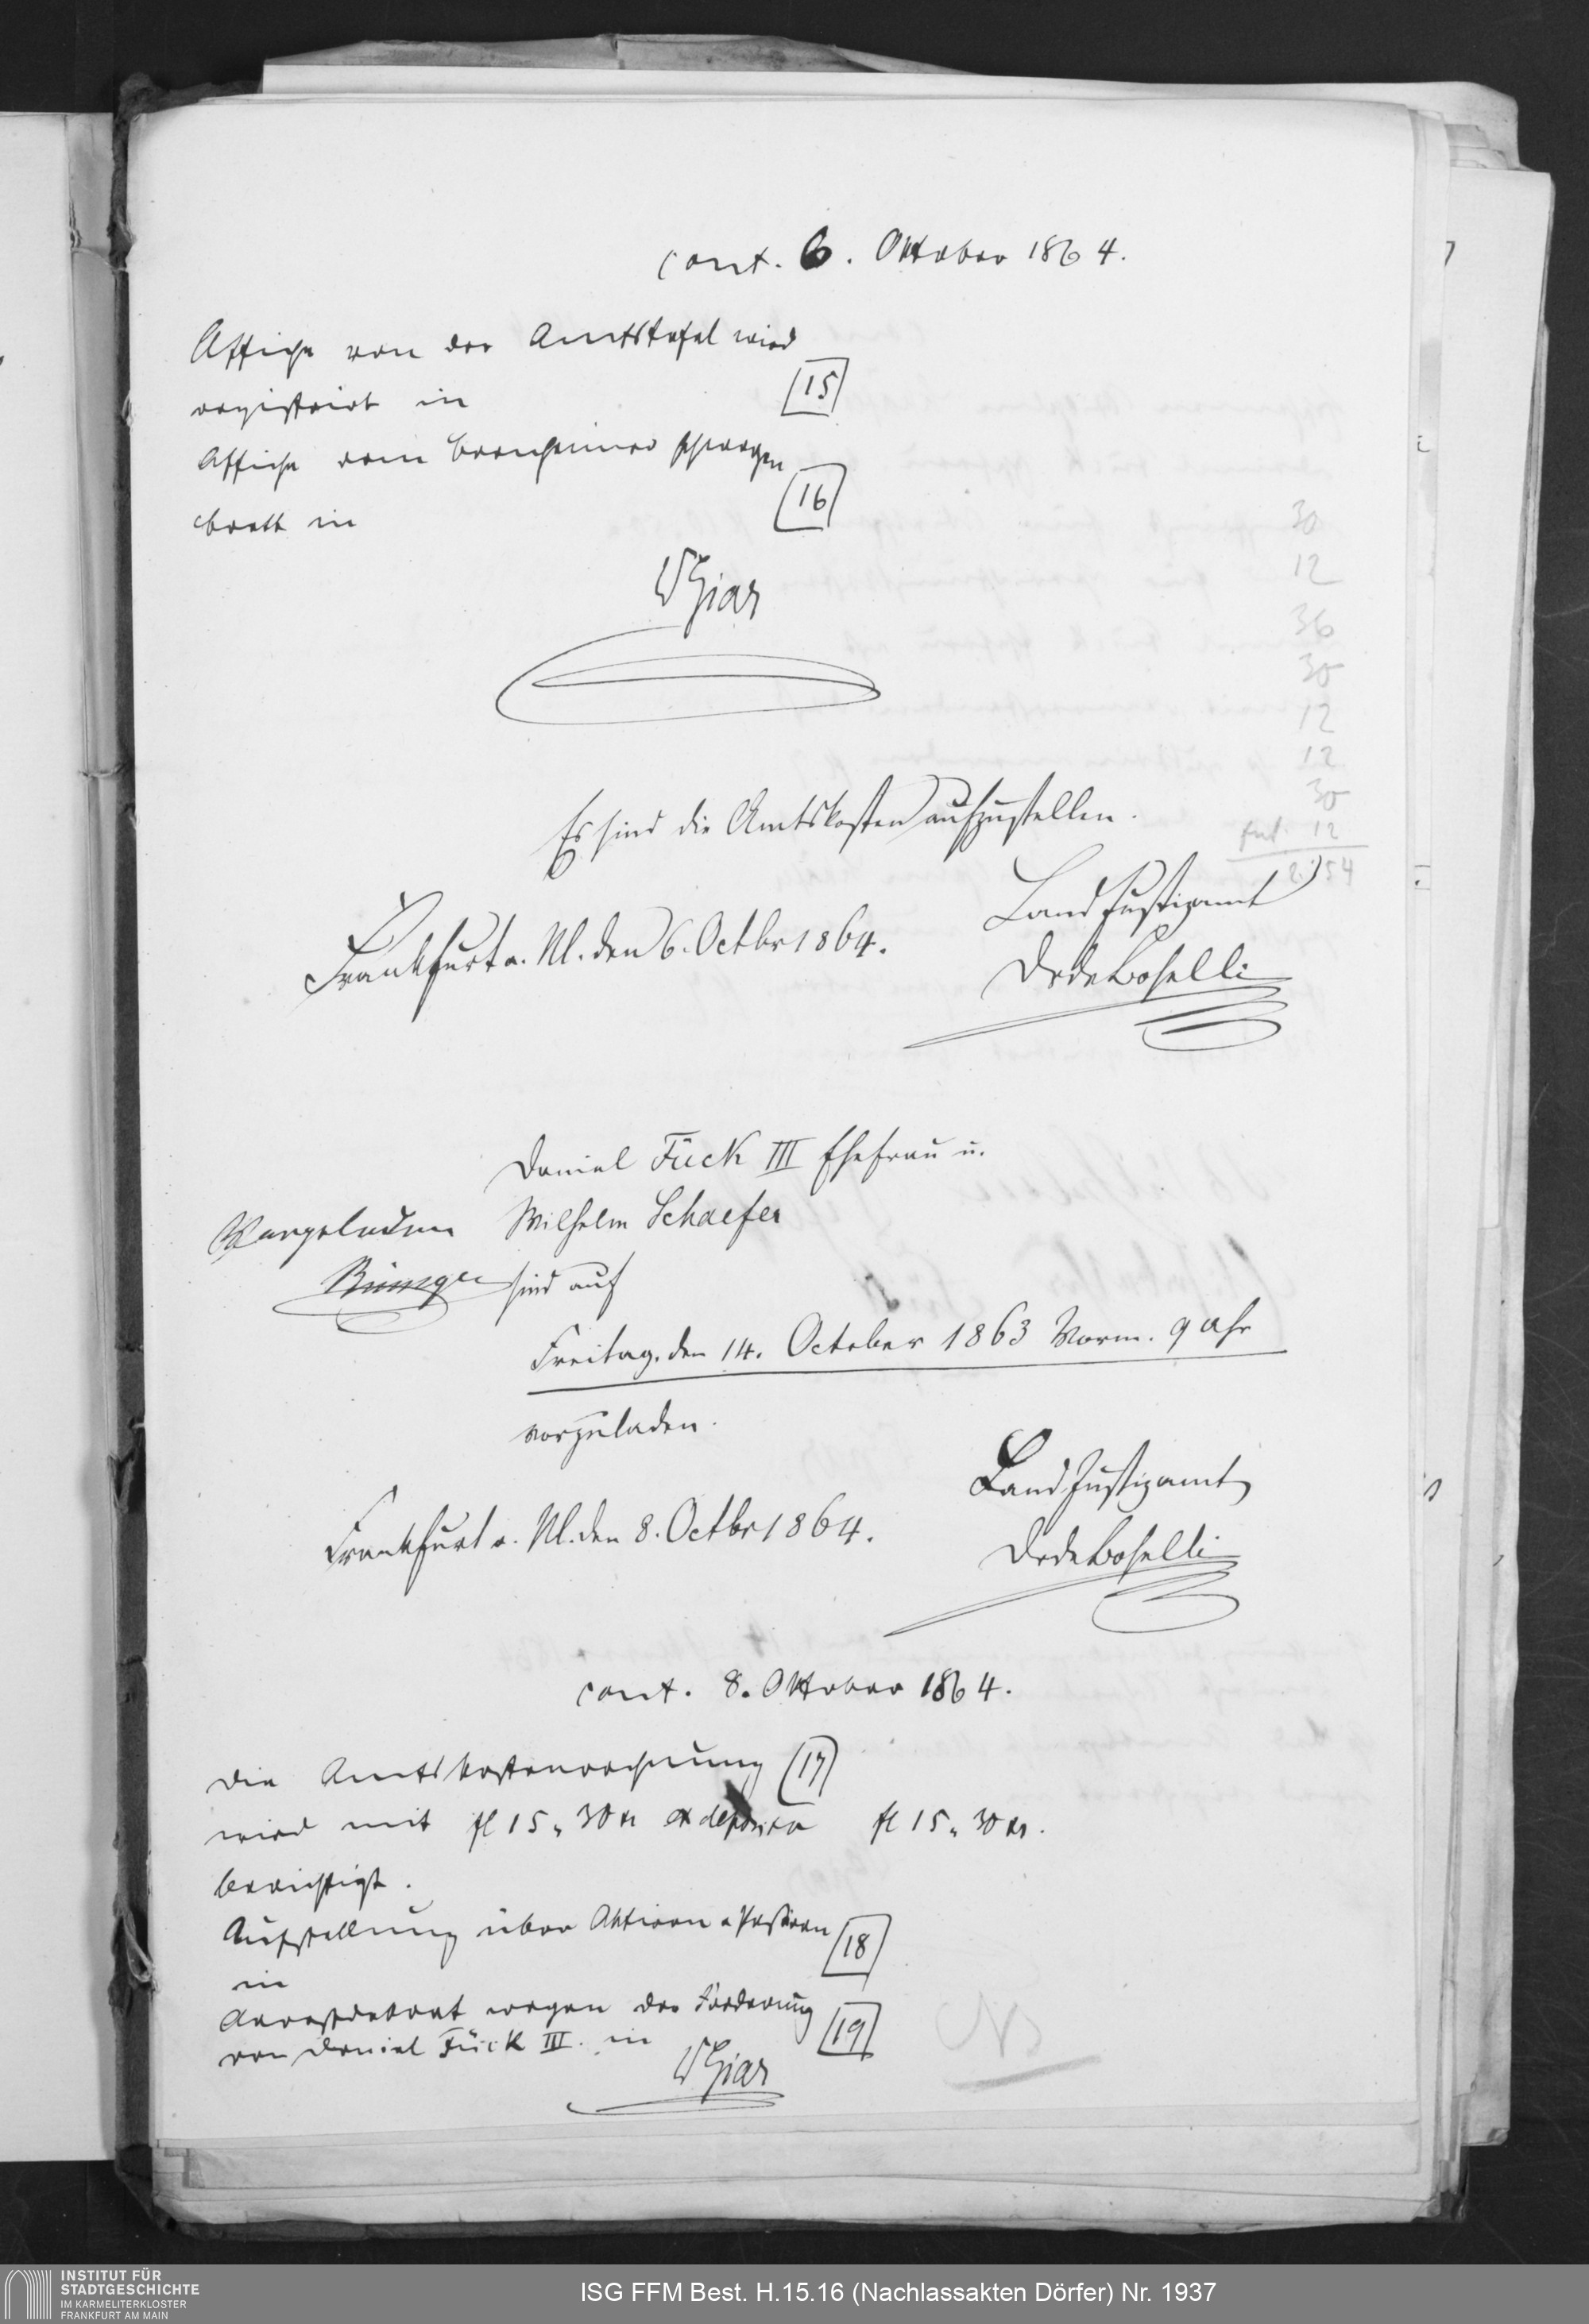 cont. 6. Oktober 1864.
Affiche von der Amtstafel wird
15
registrirt in
Affiche vom Bornheimer schwarzen
16
brett in
30
12
36
30
12
12
30
12
2. 54
Es sind die Amtskosten aufzustellen.
Land Justizamt
Frankfurt a. M. den 6. Octbr 1864.
Dr de Boselli
Daniel Fück III Ehefrau u.
Vorgeladen Wilhelm Schaefer
sind auf
Freitag, den 14. October 1863 Vorm. 9 Uhr
vorzuladen.
Land Justizamt
Frankfurt a. M. den 8. Octbr 1864.
Dr de Boselli
cont. 8. Oktober 1864.
Die Amtskostenrechnung 17
wird mit fl 15 „ 30 kr ex deposito fl 15 „ 30 kr.
berichtigt.
Aufstellung über Aktiven u Passiven
18
in
Arrestdekret wegen der Forderung
19
von Daniel Fück III. in
INSTITUT FÜR
STADTGESCHICHTE
IM KARMELITERKLOSTER
FRANKFURT AM MAIN
ISG FFM Best. H.15.16 (Nachlassakten Dörfer) Nr. 1937